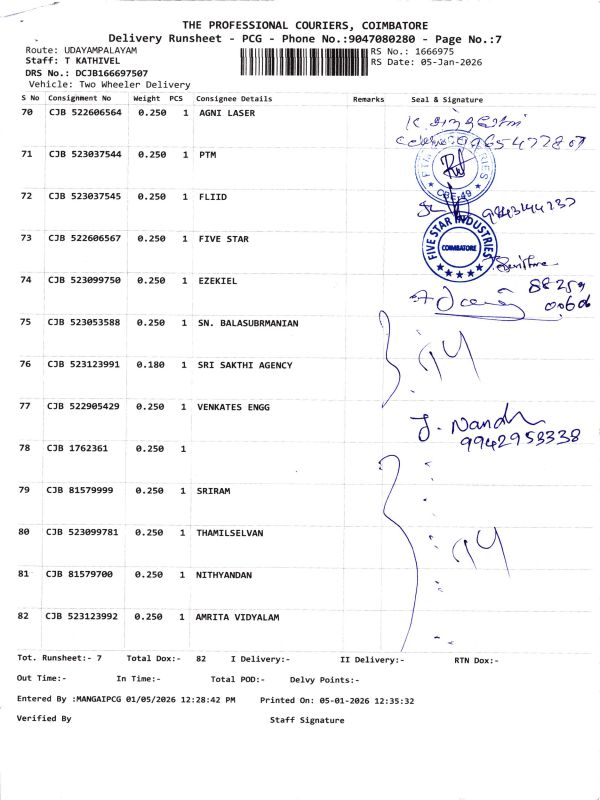 THE PROFESSIONAL COURIERS, COIMBATORE
Delivery Runsheet - PCG - Phone No.:9047080280 - Page No.:7
Route: UDAYAMPALAYAM RS No.: 1666975
Staff: T KATHIVEL RS Date: 05-Jan-2026
DRS No.: DCJB166697507
Vehicle: Two Wheeler Delivery
S No Consignment No Weight PCS Consignee Details Remarks Seal & Signature
70 CJB 522606564 0.250 1 AGNI LASER
71 CJB 523037544 0.250 1 PTM
CBE-49
72 CJB 523037545 0.250 1 FLIID
9843144237
73 CJB 522606567 0.250 1 FIVE STAR
FIVE STAR INDUSTRIES
COIMBATORE
74 CJB 523099750 0.250 1 EZEKIEL
75 CJB 523053588 0.250 1 SN. BALASUBRMANIAN
76 CJB 523123991 0.180 1 SRI SAKTHI AGENCY
77 CJB 522905429 0.250 1 VENKATES ENGG
J. Nandh
9942953338
78 CJB 1762361 0.250 1
79 CJB 81579999 0.250 1 SRIRAM
80 CJB 523099781 0.250 1 THAMILSELVAN
81 CJB 81579700 0.250 1 NITHYANDAN
82 CJB 523123992 0.250 1 AMRITA VIDYALAM
Tot. Runsheet:- 7 Total Dox:- 82 I Delivery:- II Delivery:- RTN Dox:-
Out Time:- In Time:- Total POD:- Delvy Points:-
Entered By :MANGAIPCG 01/05/2026 12:28:42 PM Printed On: 05-01-2026 12:35:32
Verified By Staff Signature